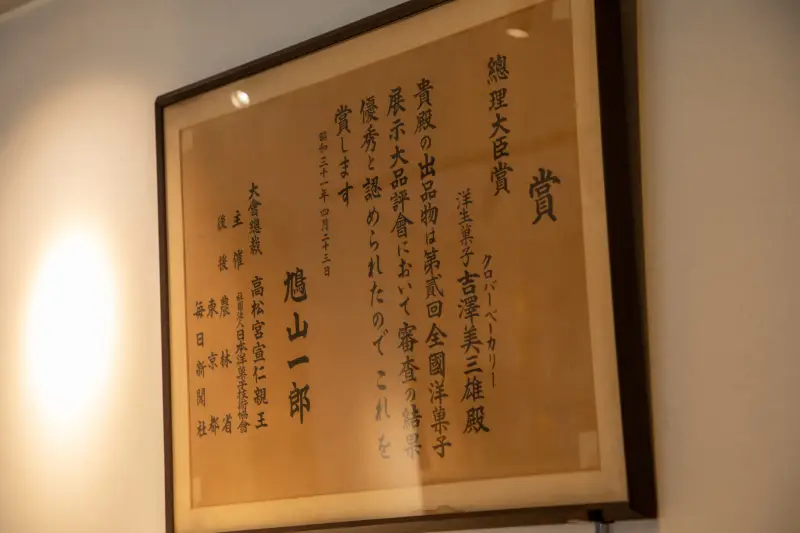 賞
總理大臣賞
クロバーベーカリー
洋生菓子 吉澤美三雄殿
貴殿の出品物は第貳回全國洋菓子
展示大品評會において審査の結果
優秀と認められたのでこれを
賞します
昭和三十一年四月二十三日
鳩山一郎
大會總裁 高松宮宣仁親王
主催 社團法人日本洋菓子技術協會
後援 農林省
東京都
毎日新聞社